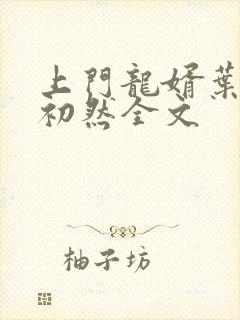 上門龍婿葉
初然全文
柚子坊